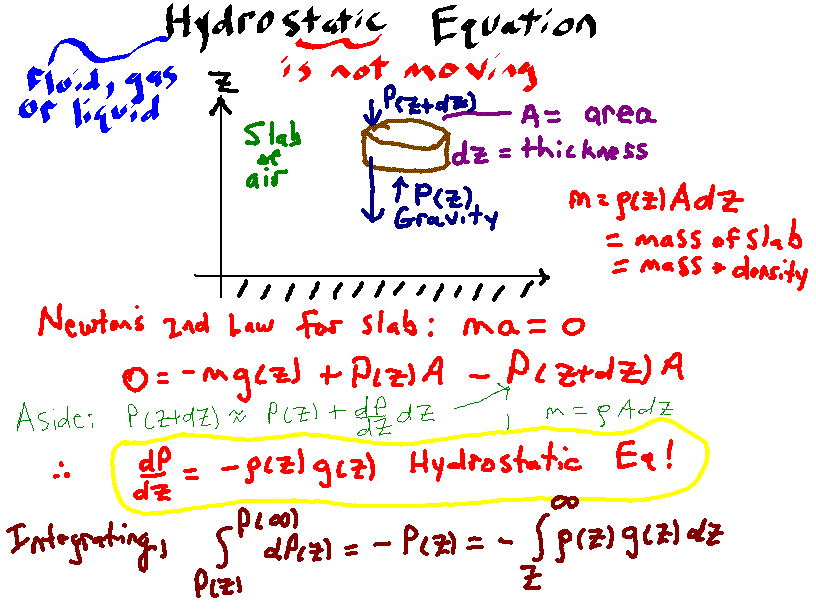 Hydrostatic Equation
Fluid, gas
or liquid
is not moving
z
P(z+dz)
A = area
Slab
of
air
dz = thickness
P(z)
Gravity
m = ρ(z) A dz
= mass of slab
= mass * density
Newton's 2nd Law for slab: ma = 0
0 = -mg(z) + P(z)A - P(z+dz)A
Aside: P(z+dz) ≈ P(z) + dP/dz dz , m = ρAdz
∴ dP/dz = -ρ(z) g(z) Hydrostatic Eq!
Integrating, ∫_{P(z)}^{P(∞)} dP(z) = -P(z) = -∫_z^∞ ρ(z) g(z) dz